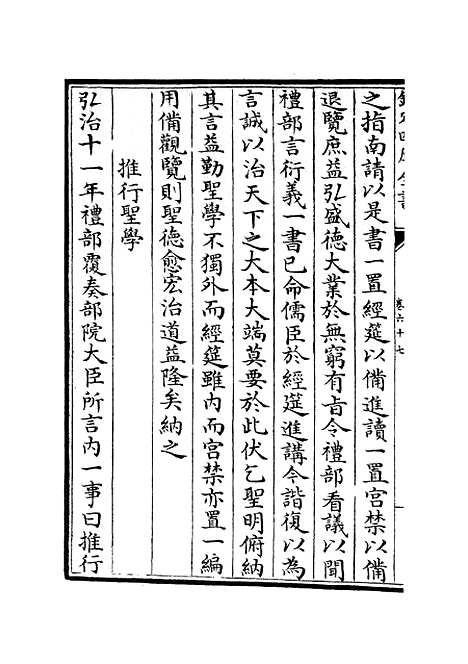 卷六十七
之指南請以是書一置經筵以備進讀一置宫禁以備
退覽庶益弘盛德大業於無窮有㫖令禮部看議以聞
禮部言衍義一書已命儒臣於經筵進講今諧復以為
言誠以治天下之大本大端莫要於此伏乞聖明俯納
其言益勤聖學不獨外而經筵雖内而宫禁亦置一編
用備觀覽則聖德愈宏治道益隆矣納之
推行聖學
弘治十一年禮部覆奏部院大臣所言内一事曰推行